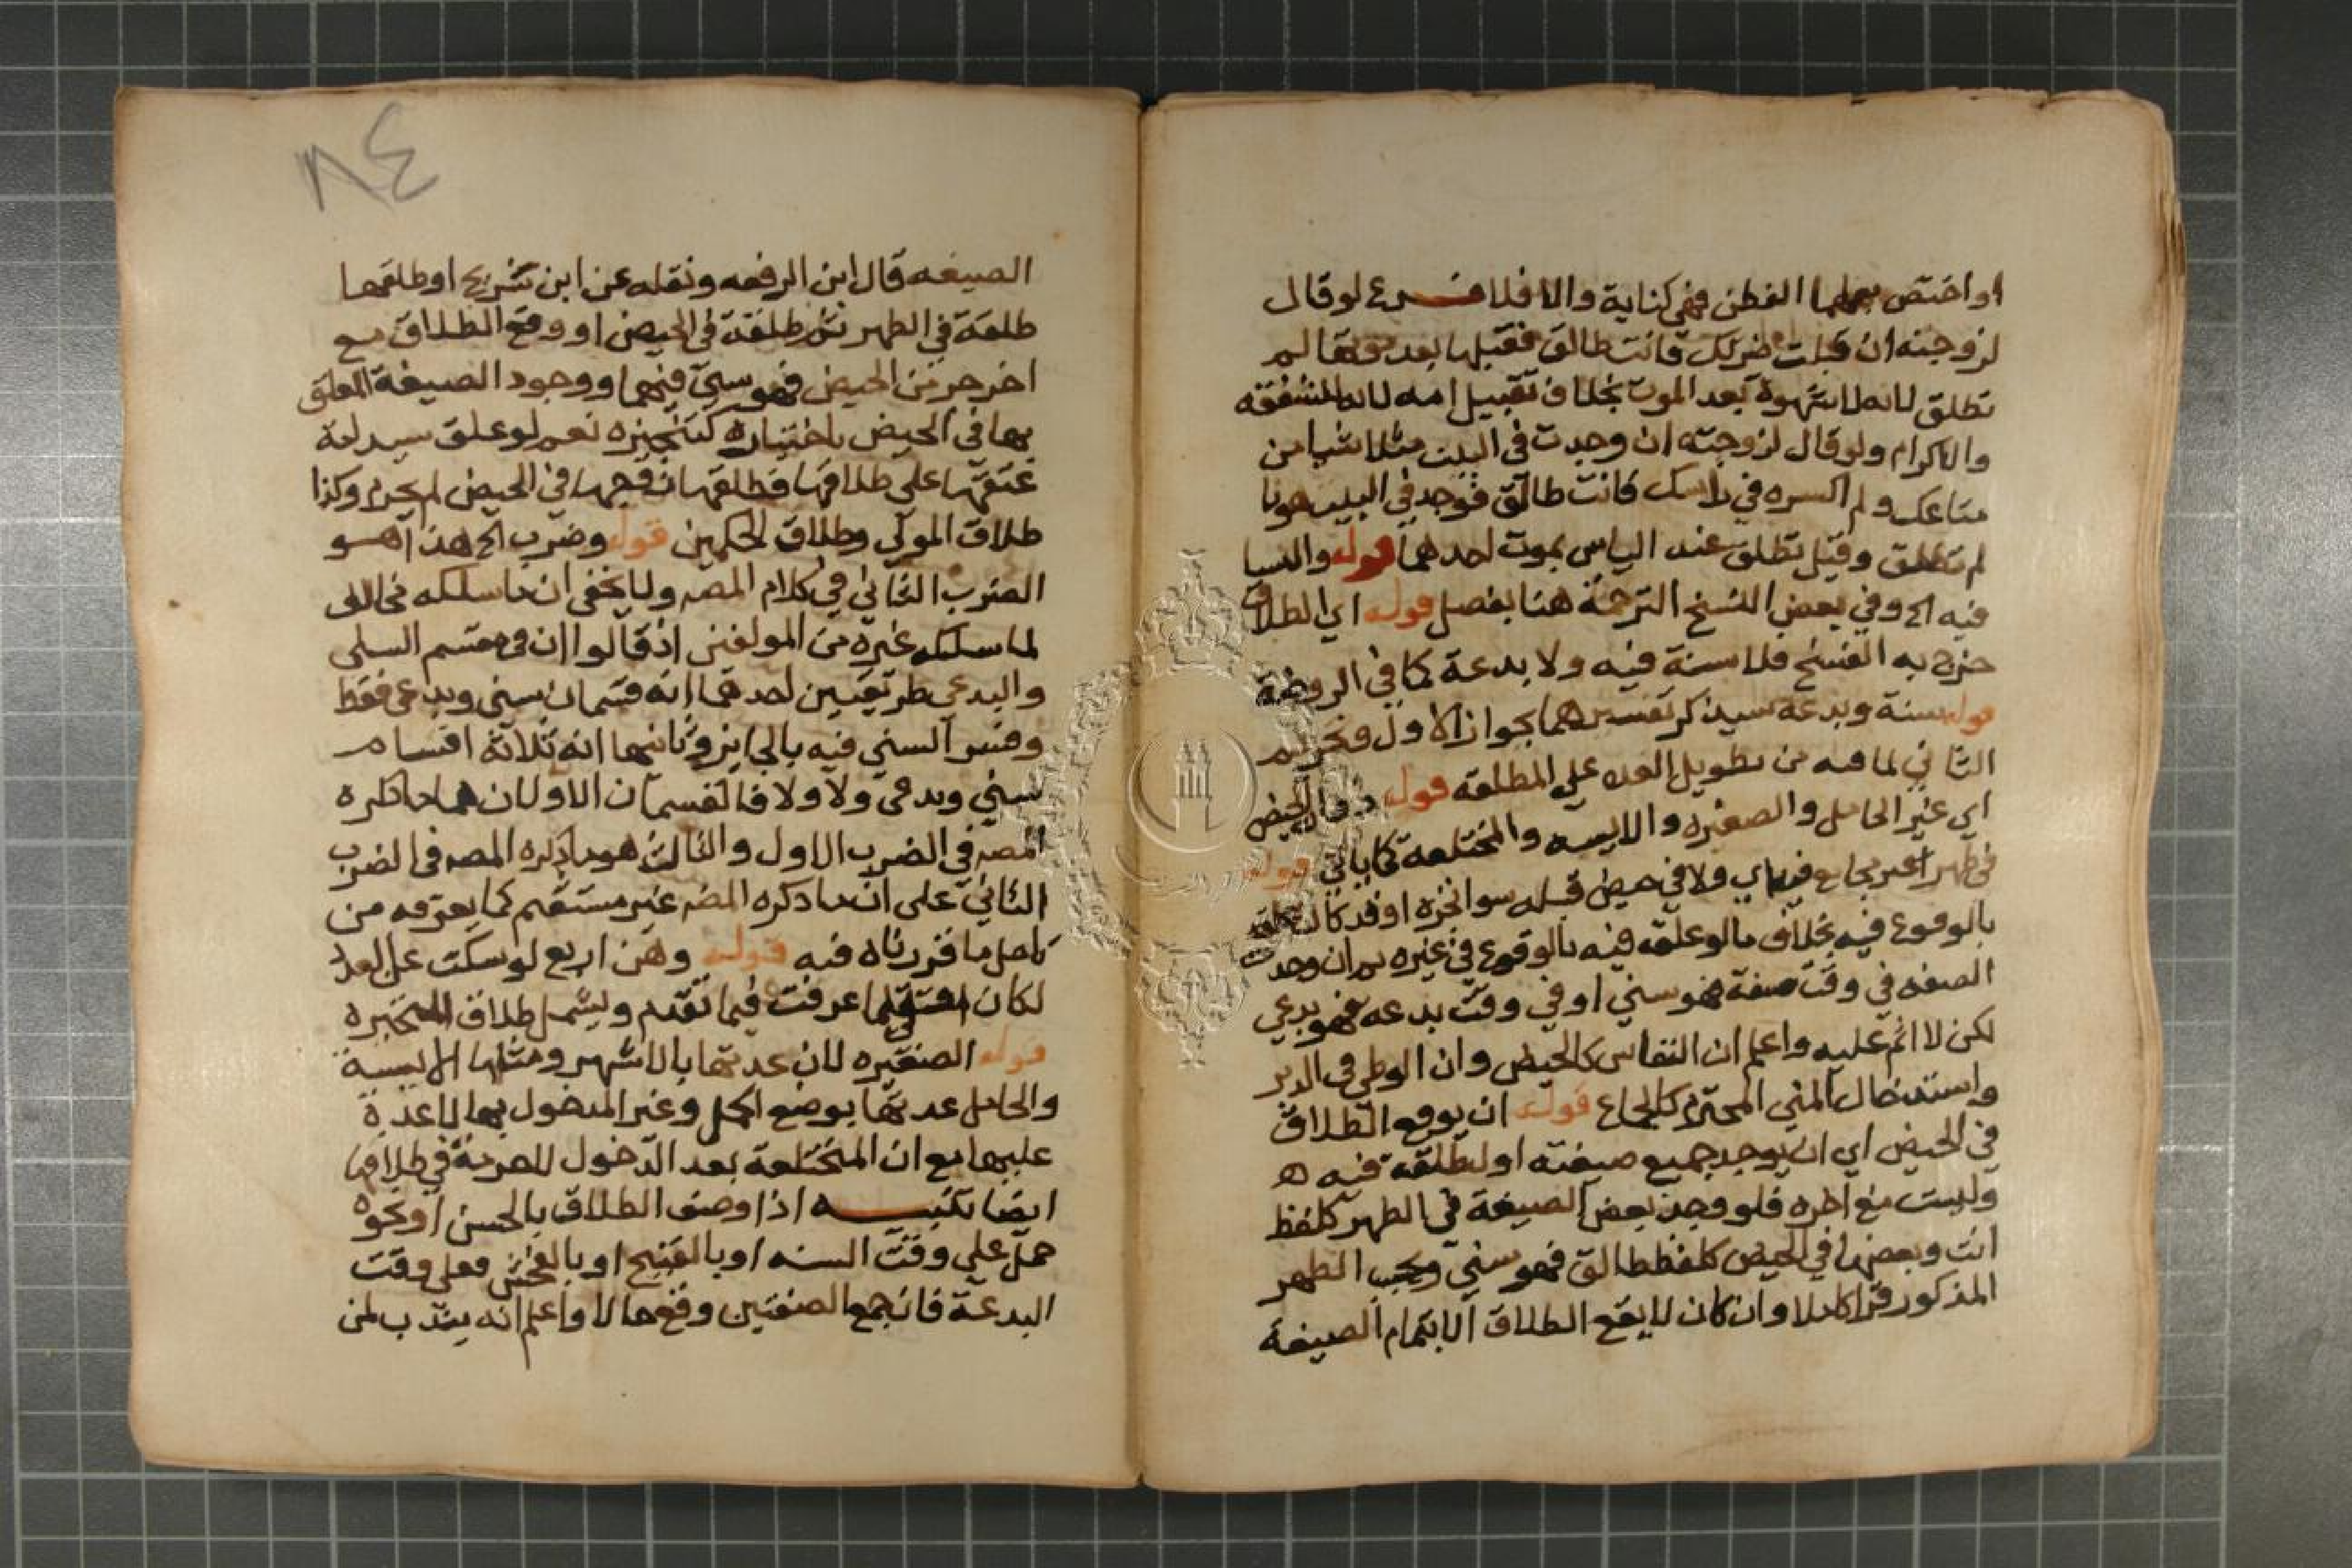 او اختص بهما الفطن فهي كناية والا فلا فرع لو قال
لزوجته ان قبلت ضرتك فانت طالق فقبلها بعد موتها لم
تطلق لانه لا شهوة بعد الموت بخلاف تقبيل امه لانه للشفقة
والاكرام ولو قال لزوجته ان وجدت في البيت مثلا شيا من
متاعك ولم اكسره في راسك فانت طالق فوجد في البيت هونا
لم تطلق وقيل تطلق عند الياس بموت احدهما قوله والنسا
فيه الخ وفي بعض النسخ الترجمة هنا بفصل قوله اي الطلاق
خرج به الفسخ فلا سنة فيه ولا بدعة كما في الروضة
قوله سنة وبدعة سيذكر تفسيرهما بجواز الاول وتحريم
الثاني لما فيه من تطويل العدة على المطلقة قوله ذوات الحيض
اي غير الحامل والصغيره والايسه والمختلعة كما ياتي قوله
في طهر غير مجامع فيه اي ولا في حيض قبله سوا نجزه او قد كان علقه
بالوقوع فيه بخلاف ما لو علقه فيه بالوقوع في غيره ثم ان وجدت
الصفه في وقت صفة فهو سني او في وقت بدعه فهو بدعي
لكن لا اثم عليه واعلم ان النفاس كالحيض وان الوطي في الدبر
واستدخال المني المحترم كالجماع قوله ان يوقع الطلاق
في الحيض اي ان يوجد جميع صيغته او ليطلقه فيه ه
وليست مع اخره فلو وجد بعض الصيغة في الطهر كلفظ
انت وبعضها في الحيض كلفظ طالق فهو سني ويحسب الطهر
المذكور قرا كاملا وان كان لا يقع الطلاق الا بتمام الصيغة
٨٤
الصيغه قال ابن الرفعه ونقله عن ابن شريح او طلقها
طلقة في الطهر ثم طلقة في الحيض او وقع الطلاق مع
اخر جز من الحيض فهو سني فيهما ووجود الصيغة المعلق
بها في الحيض باختياره كتنجيزه نعم لو علق سيد امة
عتقها على طلاقها فطلقها زوجها في الحيض لم يحرم وكذا
طلاق المولي وطلاق الحكمين قوله وضرب الخ هذا هو
الضرب الثاني في كلام المصه ولا يخفى ان ما سلكه مخالف
لما سلكه غيره من المولفين اذ قالوا ان في مقسم السني
والبدعي طريقين احدهما انه قسمان سني وبدعي فقط
وفسر السني فيه بالجايز وثانيهما انه ثلاثة اقسام
سني وبدعي ولا ولا فالقسمان الاولان هما ما ذكره
المصه في الضرب الاول والثالث هو ما ذكره المصه في الضرب
الثاني على ان ما ذكره المصه غير مستقيم كما يعرفه من
تامل ما قررناه فيه قوله وهن اربع لو سكت عن العدد
لكان لما عرفت فيما تقدم وليشمل طلاق المتحيره
قوله الصغيره لان عدتها بالاشهر ومثلها الايسة
والحامل عدتها بوضع الحمل وغير المدخول بها لا عدة
عليها مع ان المختلعة بعد الدخول للحرمة في طلاقها
ايضا تنبيه اذا وصف الطلاق بالحسن او نحوه
حمل على وقت السنه او بالقبيح او بالفحش فعلى وقت
البدعة فان جمع الصفتين وقع حالا واعلم انه يندب لمن